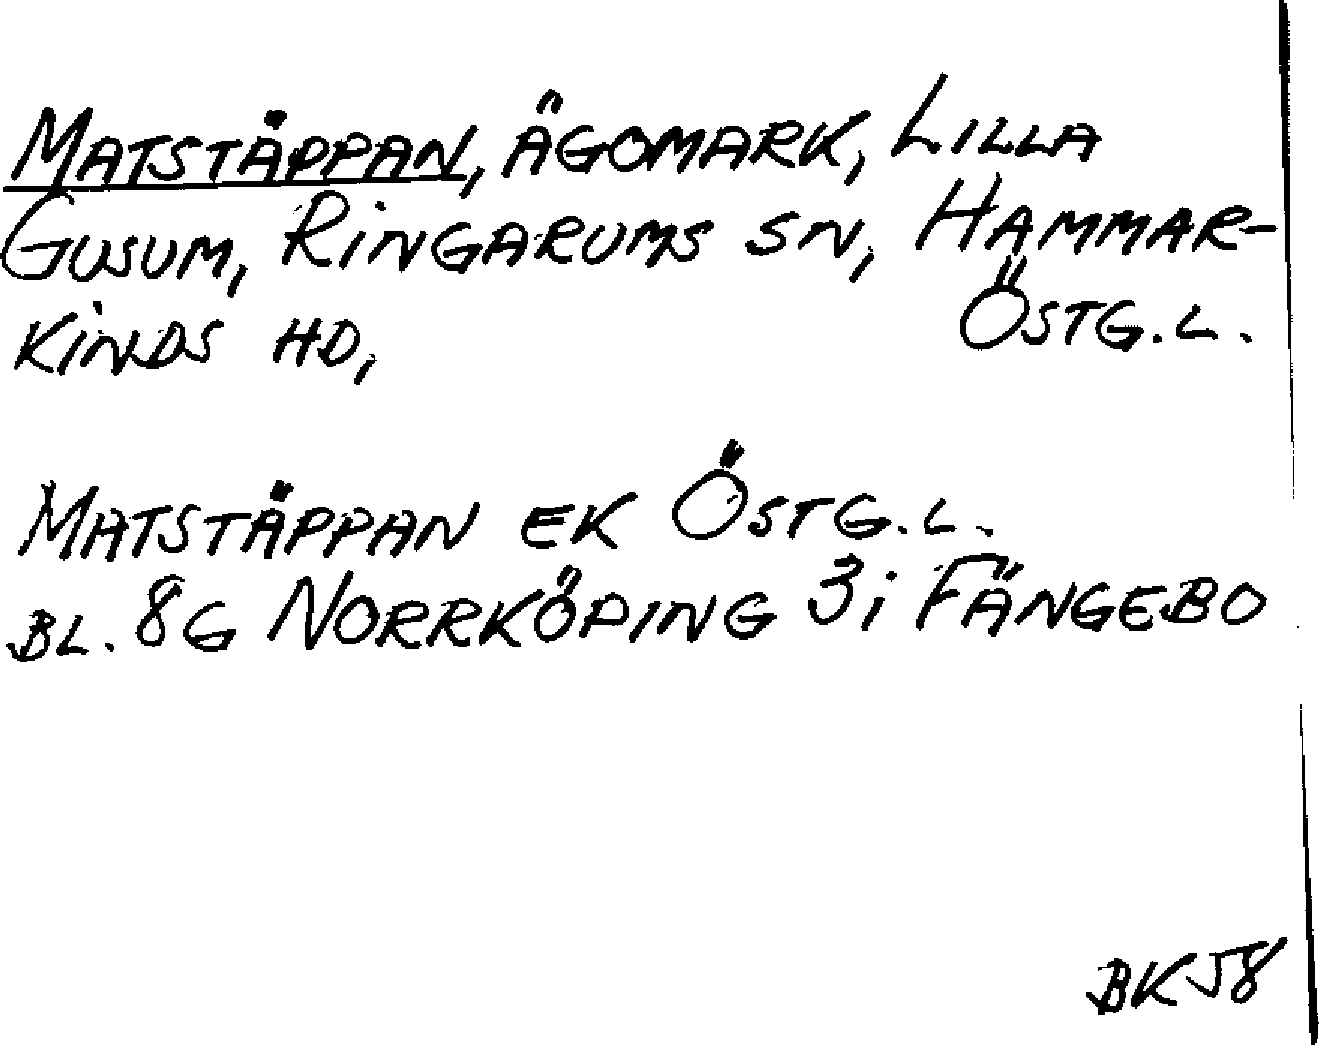 MATSTÄPPAN, ÄGOMARK, LILLA
GUSUM, RINGARUMS SN, HAMMAR-
KINDS HD, ÖSTG.L.
MATSTÄPPAN EK ÖSTG.L.
BL. 8G NORRKÖPING 3i FÄNGEBO
BK58